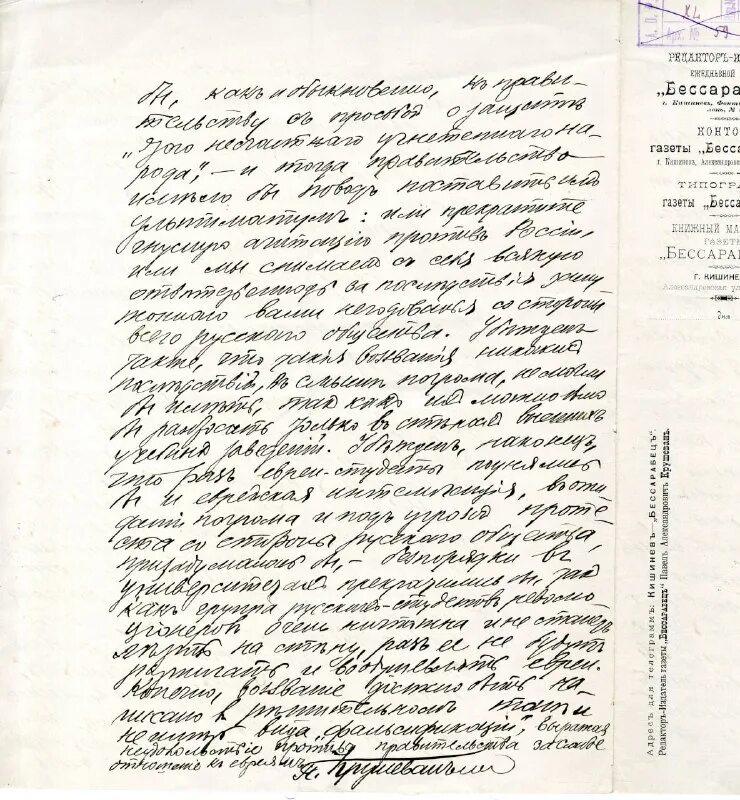 бы, какъ и обыкновенно, къ прави-
тельству съ просьбой о защитѣ
„этого несчастнаго угнетеннаго на-
рода“, — и тогда правительство
имѣло бы поводъ поставить имъ
ультиматумъ: или прекратите
гнусную агитацію противъ Россіи,
или мы снимаемъ съ себя всякую
отвѣтственность за послѣдствія
вами негодованья со стороны
всего русскаго общества. Убѣжденъ
также, что такія воззванія никакихъ
послѣдствій, въ смыслѣ погрома, не могли
бы имѣть, такъ какъ ихъ можно было
бы разбросать только въ стѣнахъ высшихъ
учебныхъ заведеній. Убѣжденъ, наконецъ,
что разъ евреи-студенты
бы и еврейская интеллигенція, въ ожи-
даніи погрома и подъ угрозой проте-
ста со стороны русскаго общества,
призадумались бы, — безпорядки въ
университетахъ прекратились бы, такъ
какъ группа русскихъ-студентовъ револю-
ціонеровъ очень ничтожна и не станетъ
лѣзть на стѣну, разъ ее не будутъ
разжигать и воодушевлять евреи.
Конечно, воззваніе должно быть на-
писано и
не имѣть вида „фальсификаціи“, выражая
недовольствіе противъ правительства за слабое
отношеніе къ евреямъ.
П. Крушеванъ
А. П.
XL
Арх. №
59
РЕДАКТОРЪ-И
ЕЖЕДНЕВНОЙ
„Бессара
г. Кишиневъ,
КОНТО
газеты „Бесс
г. Кишиневъ, Александров
ТИПОГРА
газеты „Бесса
КНИЖНЫЙ МА
ГАЗЕТЫ
„БЕССАРА
Г. КИШИНЕ
Александровская ул
дня
Адресъ для телеграммъ: Кишиневъ—„БЕССАРАБЕЦЪ“.
Редакторъ-Издатель газеты „БЕССАРАБЕЦЪ“ Павелъ Александровичъ Крушеванъ.